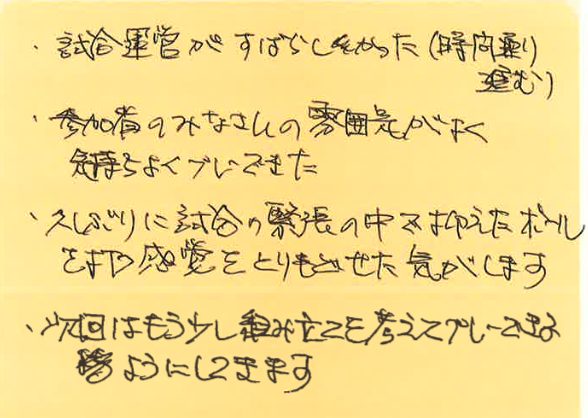 ・試合運営がすばらしかった(時間通り
進む)
・参加者のみなさんの雰囲気がよく
気持ちよくプレイできた
・久しぶりに試合の緊張の中で抑えたボール
をはや感覚をとりもどせた気がします
・次回はもう少し組み立てを考えてプレーできる
ようにしてきます